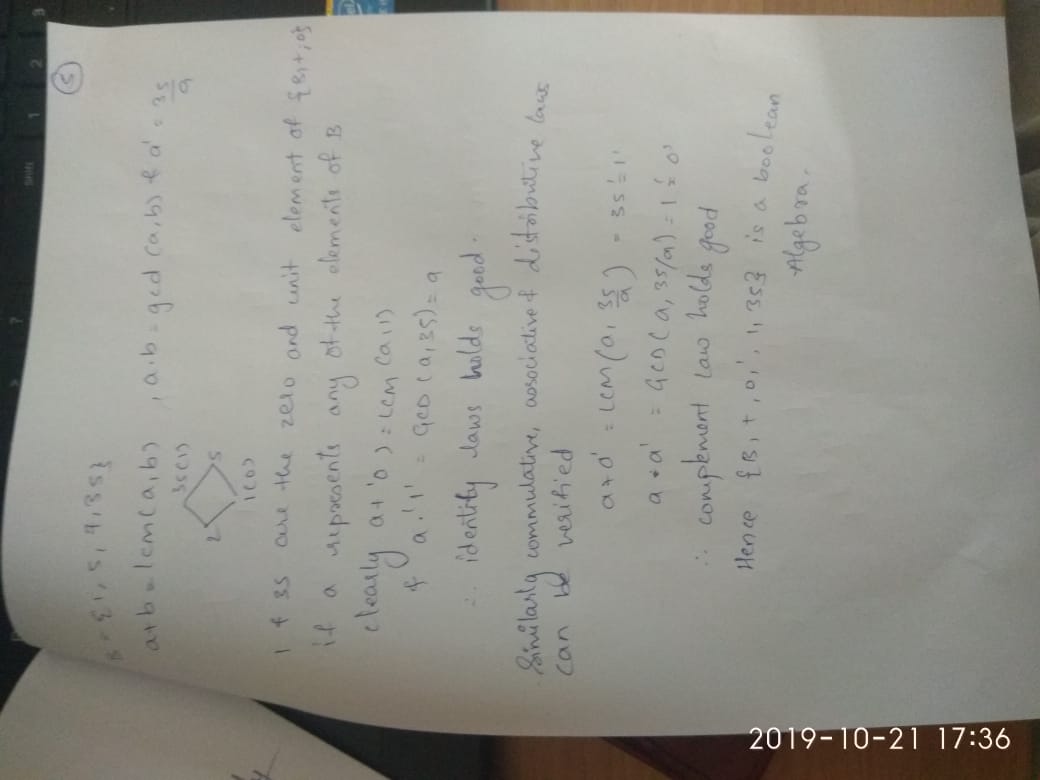 ⑤
B = {1, 5, 7, 35}
a+b = lcm(a,b) , a.b = gcd(a,b) & a' = 35/a
35(1)
2 5
1(0)
1 & 35 are the zero and unit element of {B, +, 0}
if a represents any of the elements of B
clearly a+'0' = LCM (a,1)
& a.'1' = GCD (a,35) = a
∴ identity laws holds good.
Similarly commulative, associative & distributive laws
can be verified
a+a' = LCM (a, 35/a) = 35 = '1'
a*a' = GCD (a, 35/a) = 1 = '0'
∴ complement law holds good
Hence {B, +, 0, ', 1, 35} is a boolean
Algebra.
2019-10-21 17:36